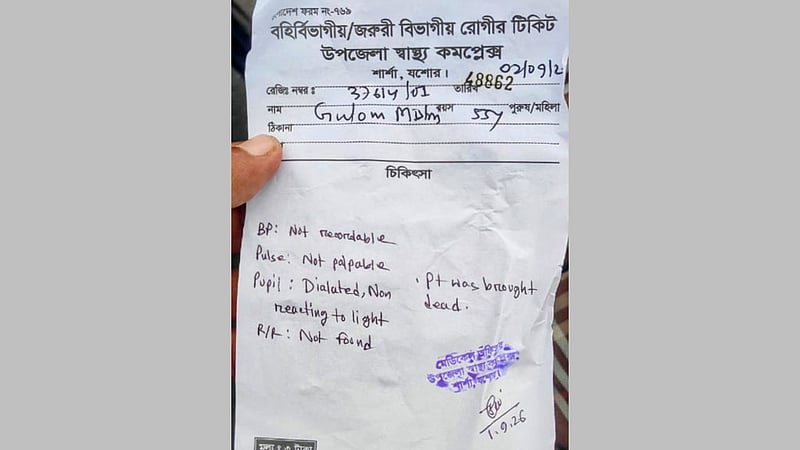 বাংলাদেশ ফরম নং-৭৬৯
বহির্বিভাগীয়/জরুরী বিভাগীয় রোগীর টিকিট
উপজেলা স্বাস্থ্য কমপ্লেক্স
শার্শা, যশোর।
02/09/2
রেজিঃ নম্বর ঃ 3764/01 তারিখ 48862
নাম Gulom বয়স 55y পুরুষ/মহিলা
ঠিকানা
চিকিৎসা
BP: Not recordable
Pulse: Not palpable
Pupil: Dialated, Non
reacting to light
R/R: Not found
. Pt was brought
dead.
মেডিকেল অফিসার
উপজেলা স্বাস্থ্য কমপ্লেক্স
শার্শা, যশোর।
1.9.26
মূল্য ঃ ৩ টাকা